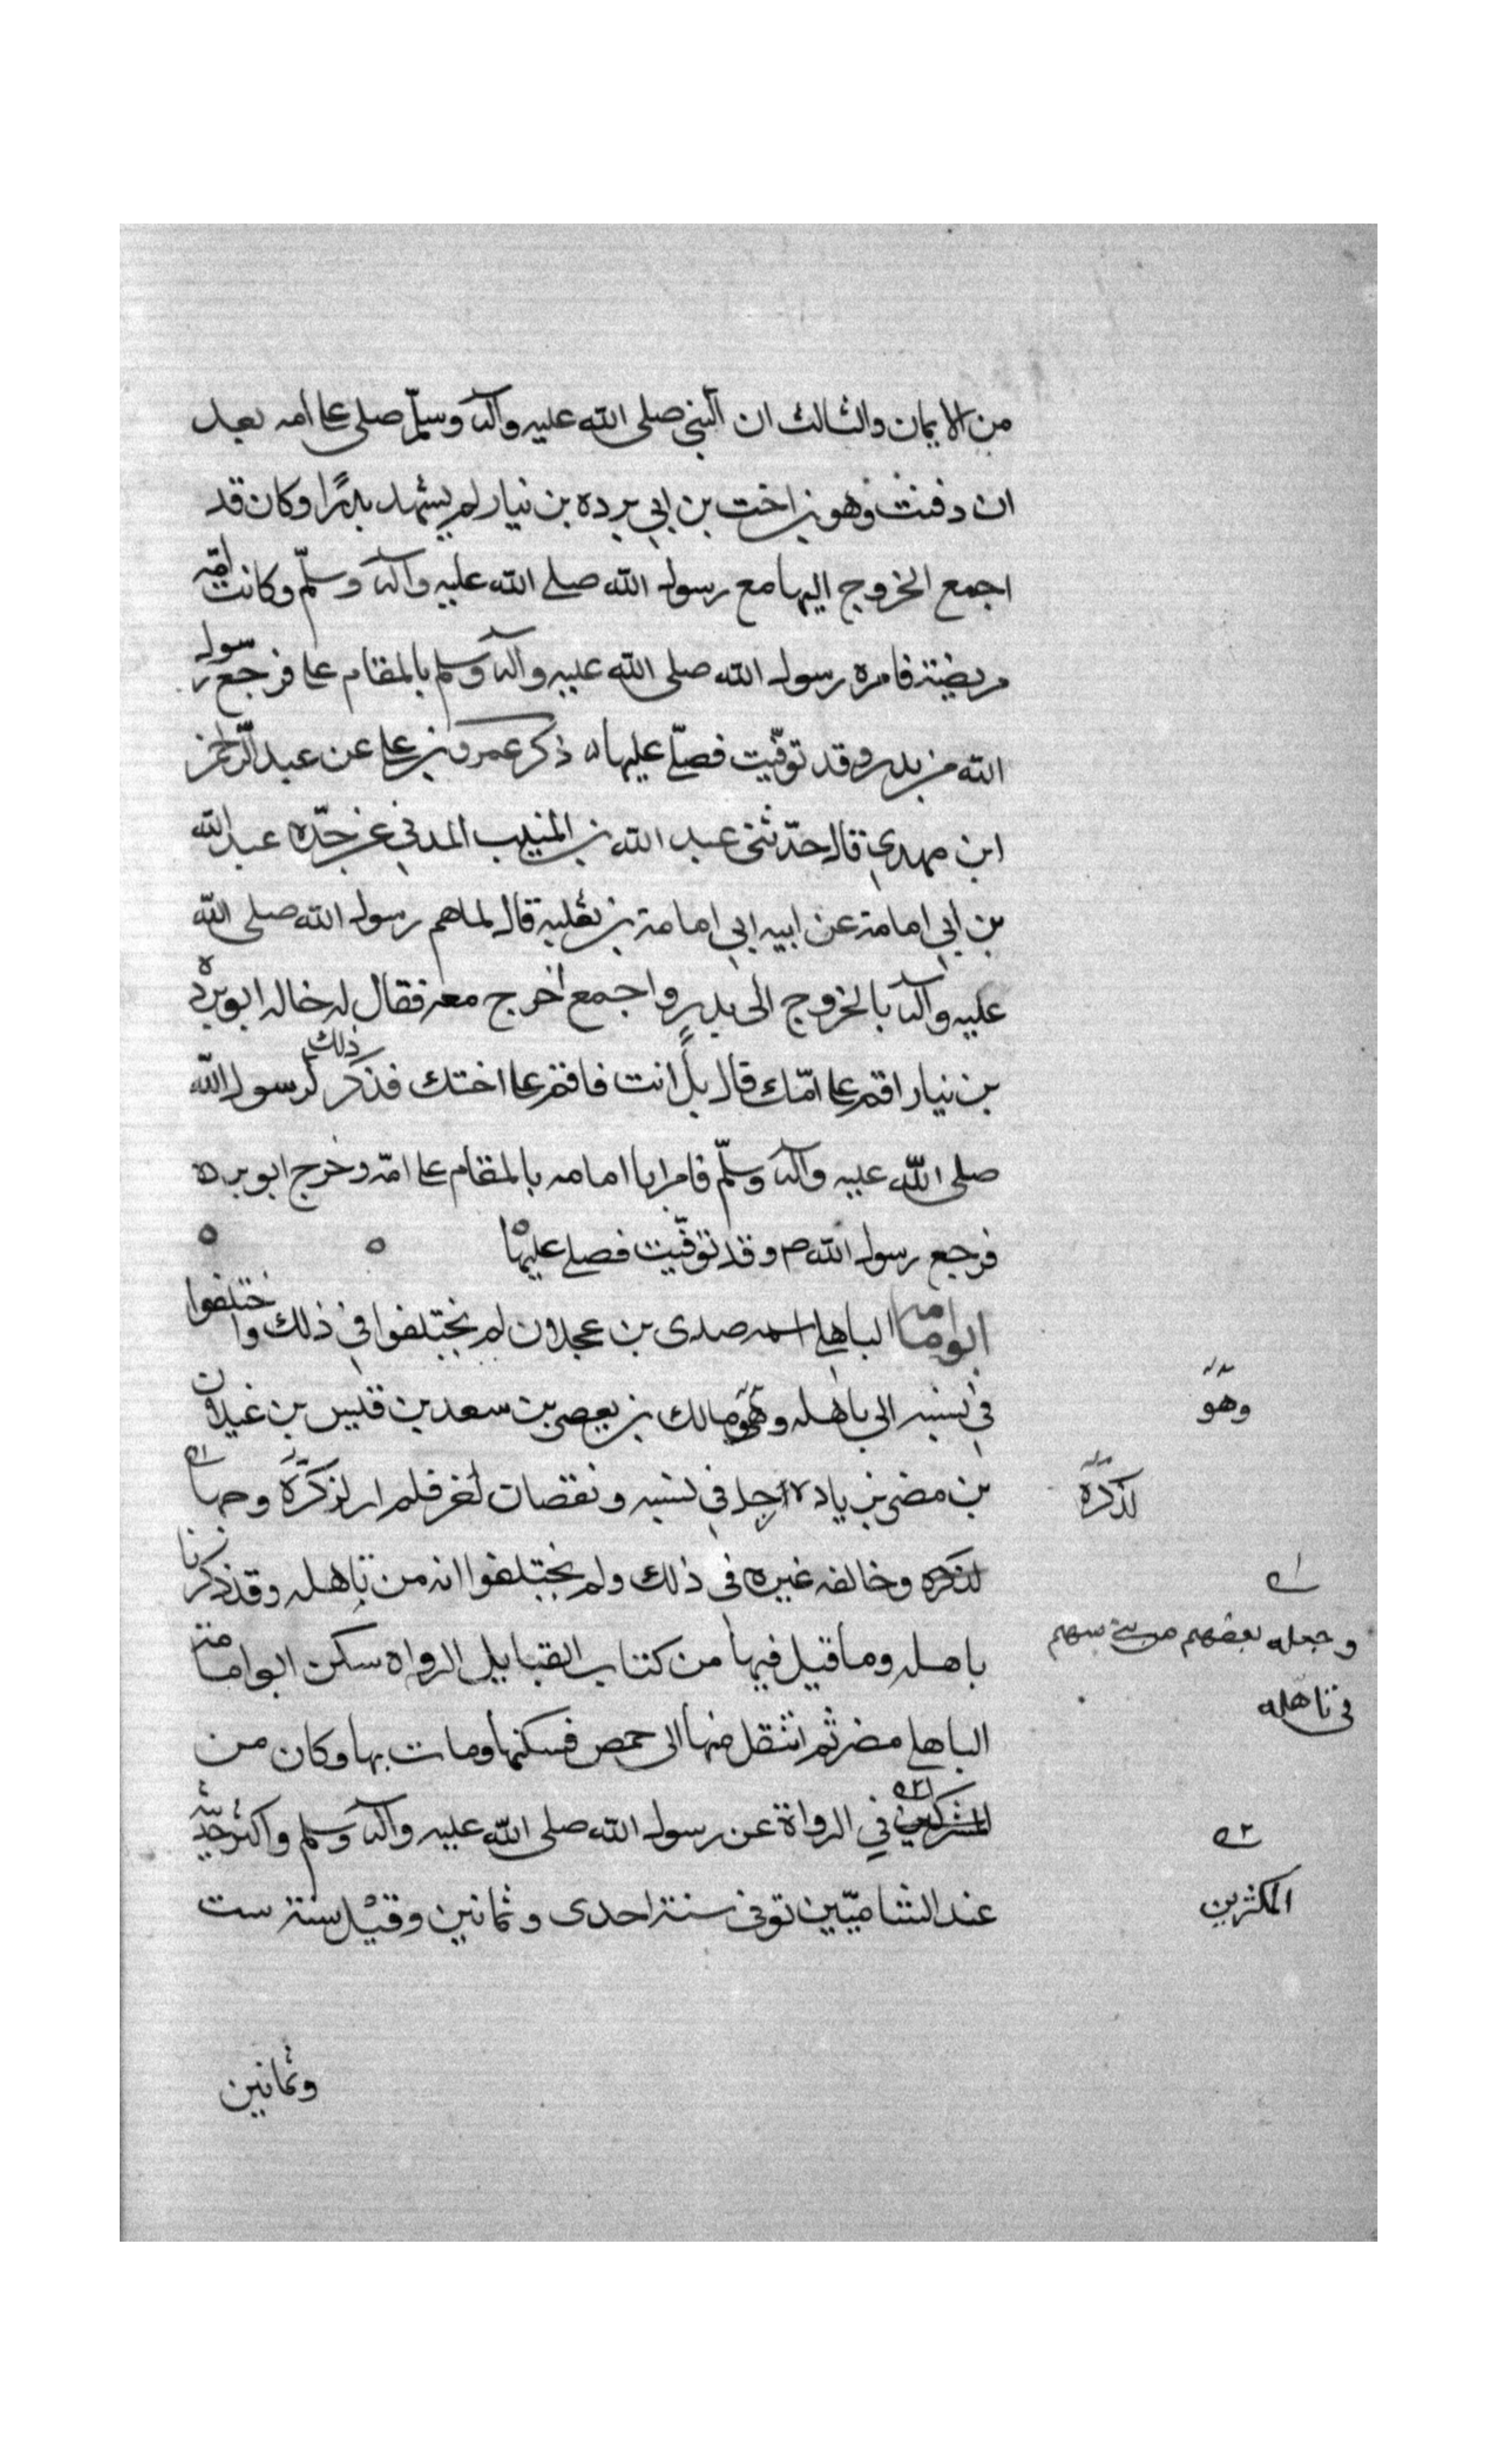 من الايمان والثالث ان النبي صلى الله عليه وآله وسلّم صلى على امه بعد
ان دفنت وهو بن اخت بن ابي برده بن نيار لم يشهد بدرًا وكان قد
اجمع الخروج اليها مع رسول الله صلى الله عليه وآله وسلّم وكانت امّه
مريضة فامره رسول الله صلى الله عليه وآله وسلم بالمقام على فرجع رسول
الله من بدر وقد توفّيت فصلّى عليها ذكر عمرو بن على عن عبد الرّحمن
ابن مهدي قال حدّثنى عبد الله بن المنيب المدني عن جدّه عبد الله
بن ابي امامة عن ابيه ابي امامة بن ثعلبه قال لما هم رسول الله صلى الله
عليه وآله بالخروج الى بدر واجمع اخرج معه فقال له خاله ابو برده
بن نيار اقم على امّك قال بل انت فاقم على اختك فذكر ذلك لرسول الله
صلى الله عليه وآله وسلّم فامر ابا امامه بالمقام على امّه وخرج ابو برده
فرجع رسول الله ص وقد توفّيت فصلى عليها
ابو امامه الباهلي اسمه صدى بن عجلان لم يختلفوا في ذلك واختلفوا
في نسبه الى باهله وهو مالك بن يعصر بن سعد بن قيس بن غيلان
بن مضر بزيادة رجل في نسبه ونقصان لغر فلم ار لذكره وجها
لذكره وخالفه غيره في ذلك ولم يختلفوا انه من باهله وقد ذكرنا
باهله وما قيل فيها من كتاب القبايل الرواه سكن ابو امامة
الباهلي مضر ثم انتقل منها الى حمص فسكنها ومات بها وكان من
المشركين في الرواة عن رسول الله صلى الله عليه وآله وسلم واكثر حديثه
عند الشاميّين توفى سنة احدى وثمانين وقيل سنة ست
وثمانين
وهو
لذكره
وجعله بعضهم من بني سهم
في باهله
المكثرين